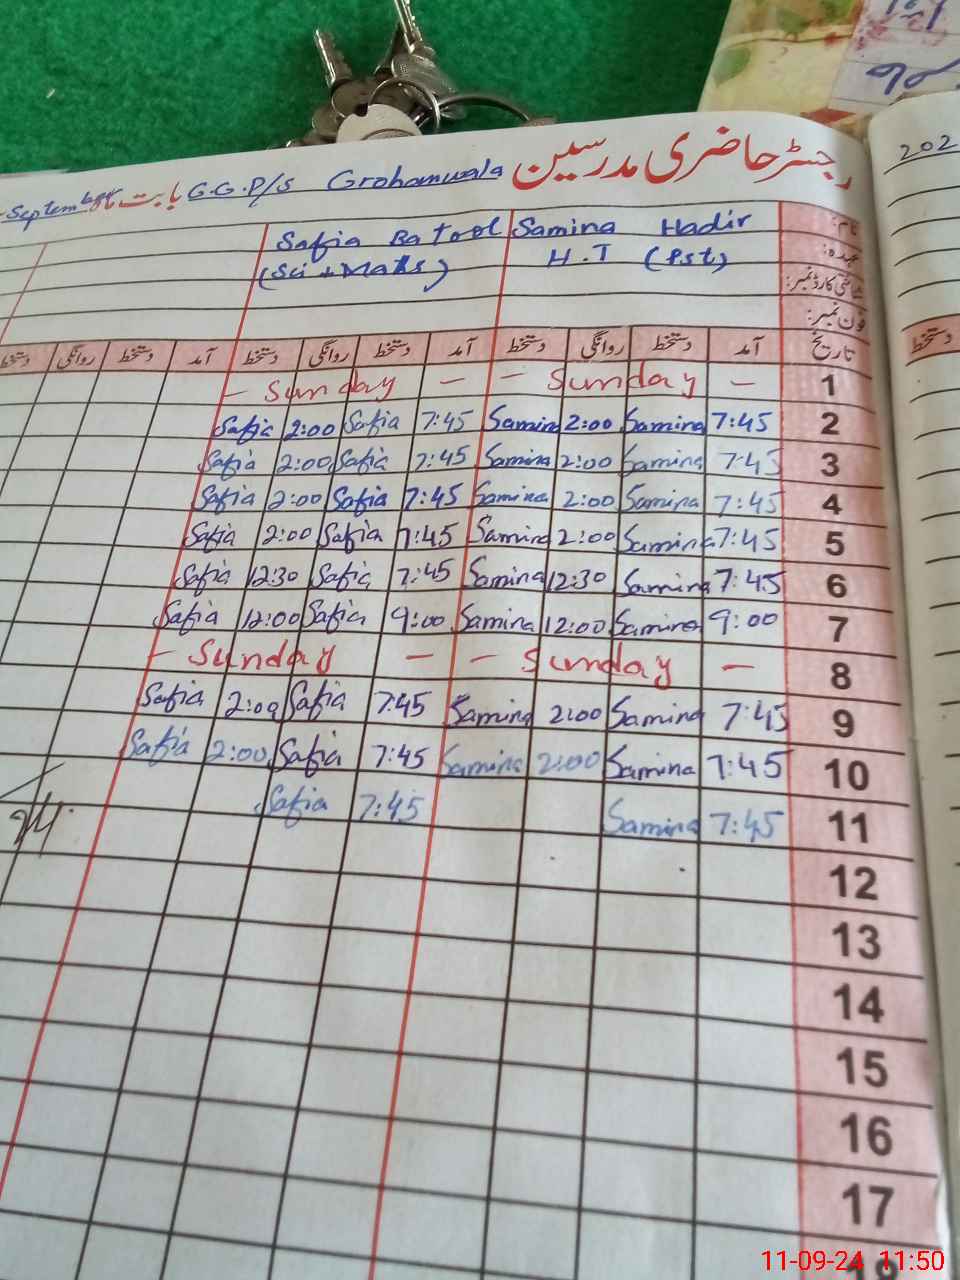 رجسٹر حاضری مدرسین G.G.P/S Grohanwala بابت ماہ September
202
نام:
Samina Hadir
Safia Batool
عہدہ:
H.T (Pst)
(Sci + Maths)
شناختی کارڈ نمبر:
فون نمبر:
تاریخ آمد دستخط روانگی دستخط آمد دستخط روانگی دستخط آمد دستخط روانگی دستخط
دستخط
1 – Sunday – – Sunday –
2 7:45 Samina 2:00 Samina 7:45 Safia 2:00 Safia
3 7:45 Samina 2:00 Samina 7:45 Safia 2:00 Safia
4 7:45 Samina 2:00 Samina 7:45 Safia 2:00 Safia
5 7:45 Samina 2:00 Samina 7:45 Safia 2:00 Safia
6 7:45 Samina 12:30 Samina 7:45 Safia 12:30 Safia
7 9:00 Samina 12:00 Samina 9:00 Safia 12:00 Safia
8 – Sunday – – Sunday –
9 7:45 Samina 2:00 Samina 7:45 Safia 2:00 Safia
10 7:45 Samina 2:00 Samina 7:45 Safia 2:00 Safia
11 7:45 Samina 7:45 Safia
12
13
14
15
16
17
11-09-24 11:50